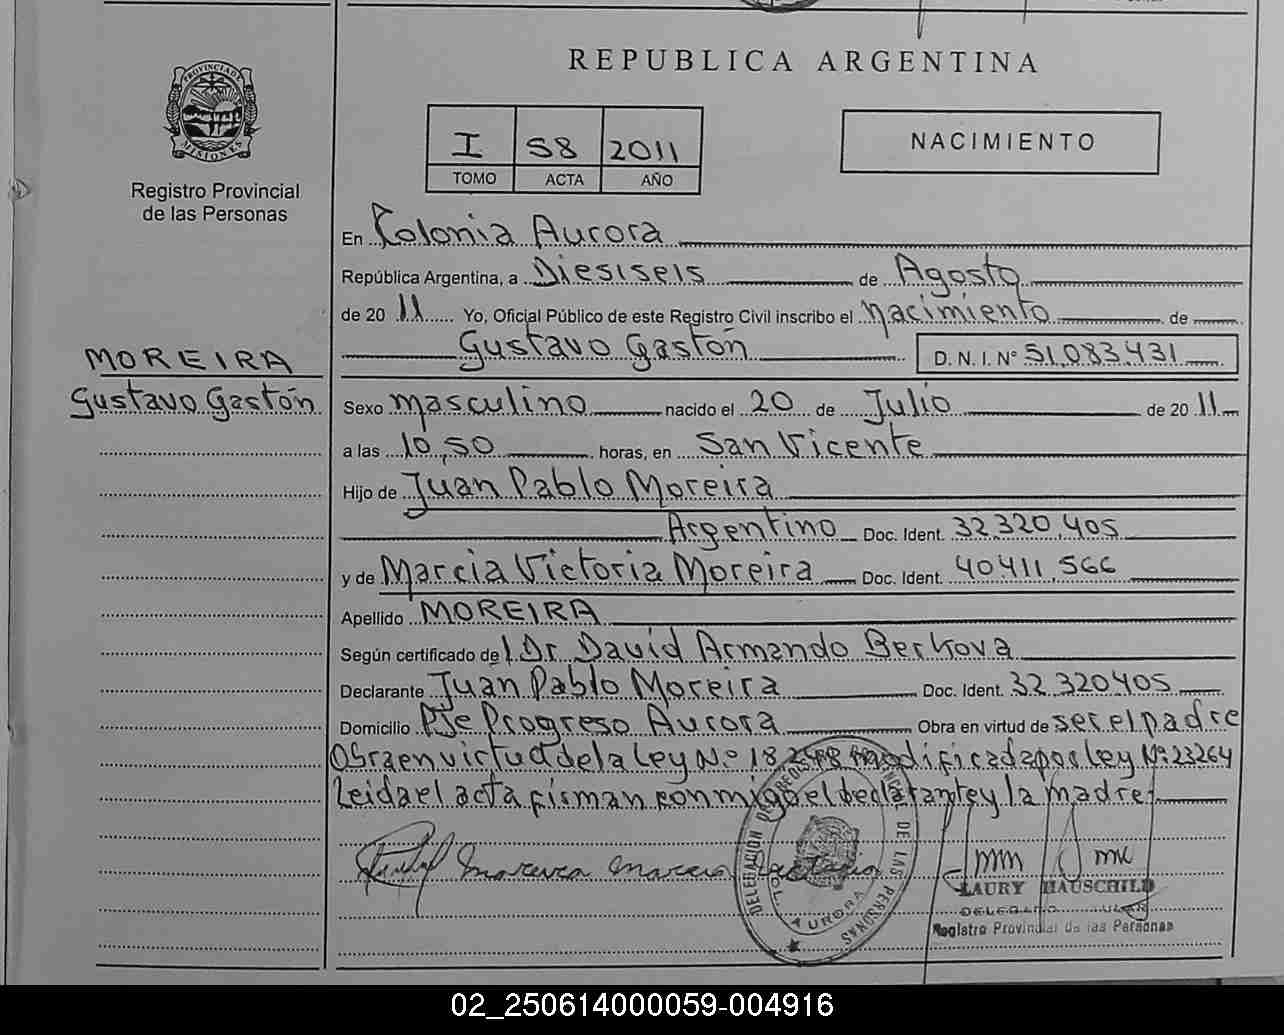 REPUBLICA ARGENTINA
PROVINCIA DE MISIONES
Registro Provincial
de las Personas
I S8 2011
TOMO ACTA AÑO
NACIMIENTO
En Colonia Aurora
República Argentina, a Diesiseis de Agosto
de 2011 Yo, Oficial Público de este Registro Civil inscribo el nacimiento de
Gustavo Gastón D. N. I. Nº 51.083.431
MOREIRA
Gustavo Gastón
Sexo masculino nacido el 20 de Julio de 2011
a las 10,50 horas, en San Vicente
Hijo de Juan Pablo Moreira
Argentino Doc. Ident. 32.320.405
y de Marcia Victoria Moreira Doc. Ident. 40.411.566
Apellido MOREIRA
Según certificado del Dr. David Armando Berkova
Declarante Juan Pablo Moreira Doc. Ident. 32.320405
Domicilio Pje Progreso Aurora Obra en virtud de ser el padre
Obra en virtud de la Ley Nº 18.248 modificada por Ley Nº 23264
Leida el acta firman conmigo el declarante y la madre.
Moreira Marcia
DELEGACION DE REGISTRO PROVINCIAL DE LAS PERSONAS
COL. AURORA
LAURY HAUSCHILD
Registro Provincial de las Personas
02_250614000059-004916